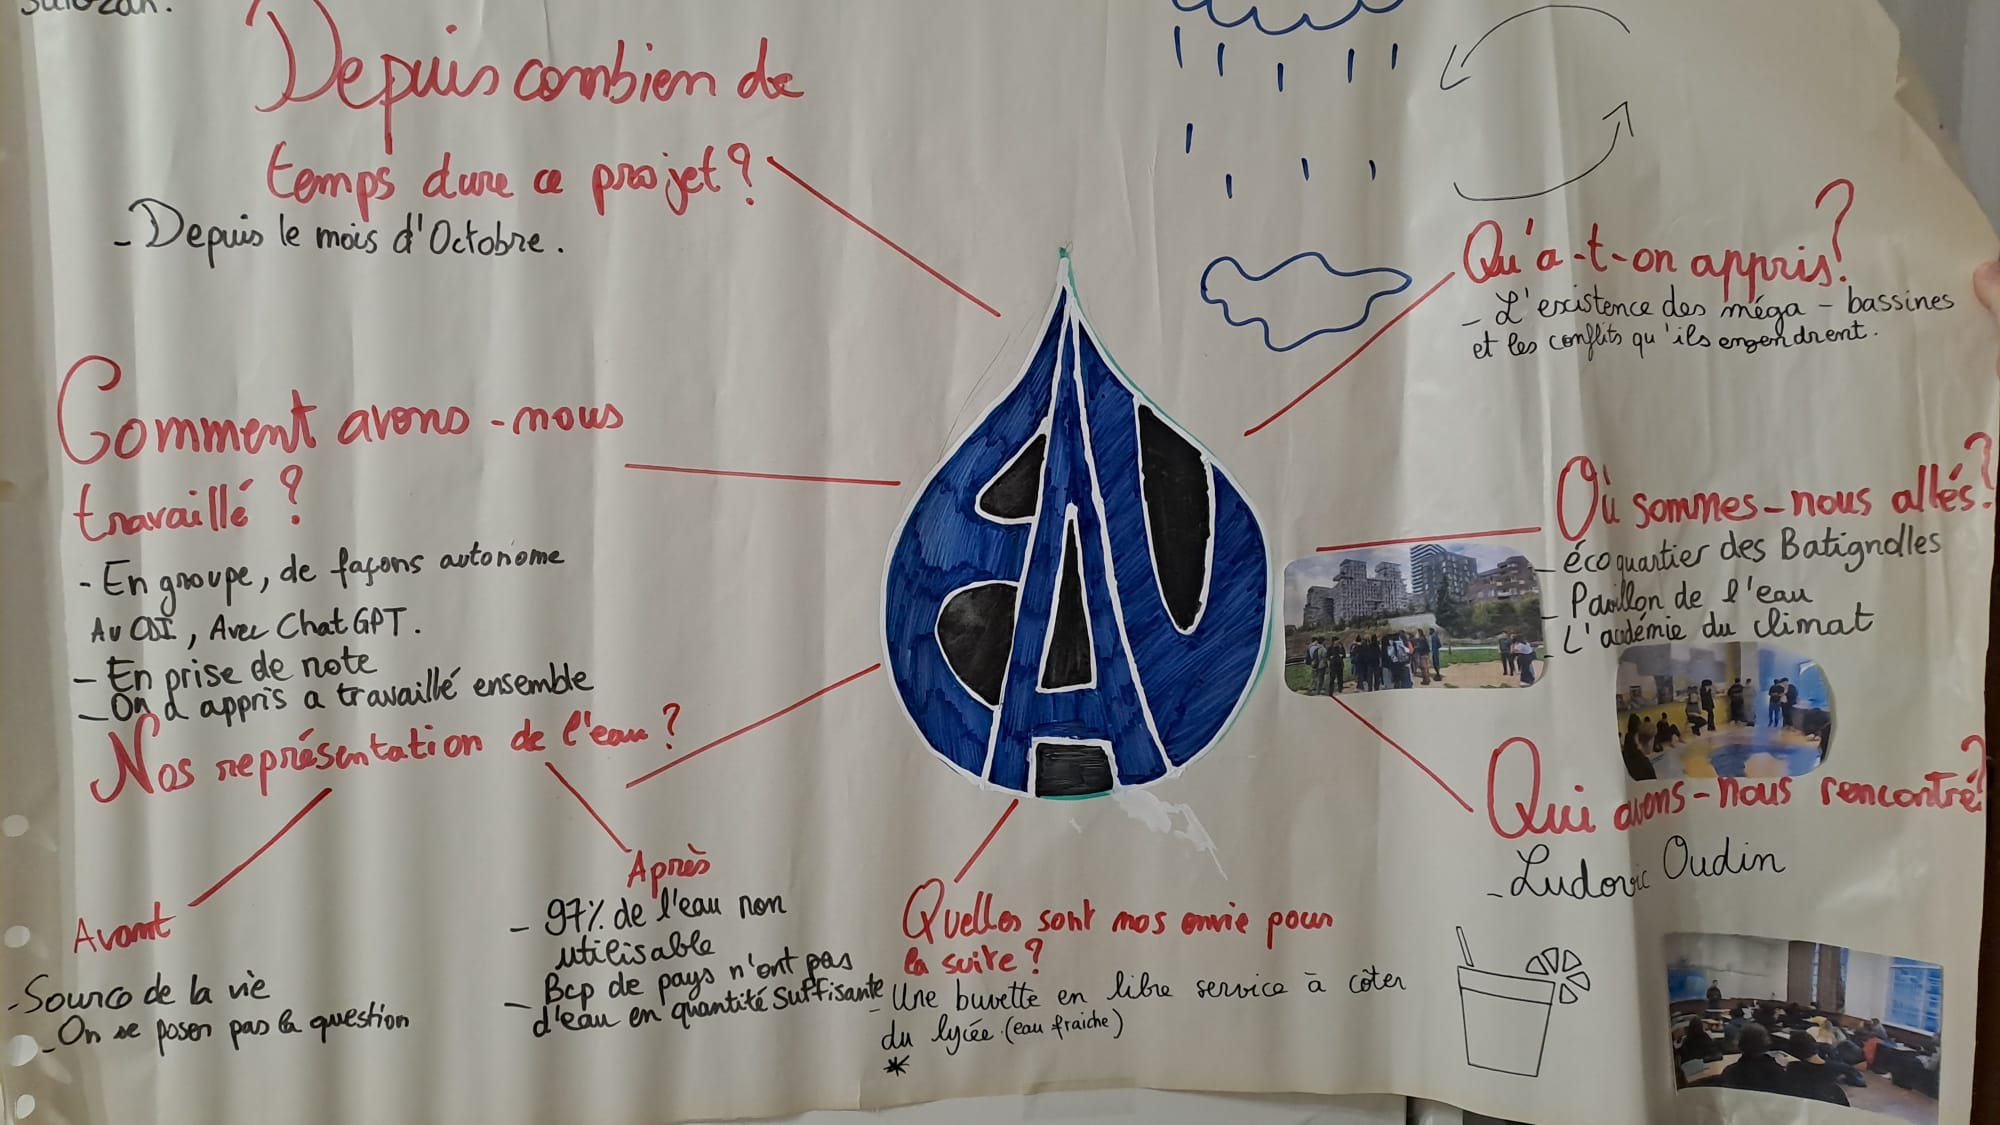 Depuis combien de
temps dure ce projet?
- Depuis le mois d'Octobre.
Comment avons-nous
travaillé ?
- En groupe, de façons autonome
Au CDI, Avec ChatGPT.
- En prise de note
- On a appris a travaillé ensemble
Nos représentation de l'eau ?
Avant
- Source de la vie
- On se posen pas la question
Après
- 97% de l'eau non
utilisable
- Bcp de pays n'ont pas
d'eau en quantité suffisante
EAU
Quelles sont nos envie pour
la suite ?
- Une buvette en libre service à côter
du lycée. (eau fraiche)
*
Qu'a-t-on appris. ?
- L'existence des méga-bassines
et les conflits qu'ils engendrent.
Où sommes-nous allés. ?
- écoquartier des Batignolles
- Pavillon de l'eau
- L'académie du climat
Qui avons-nous rencontré ?
- Ludovic Oudin